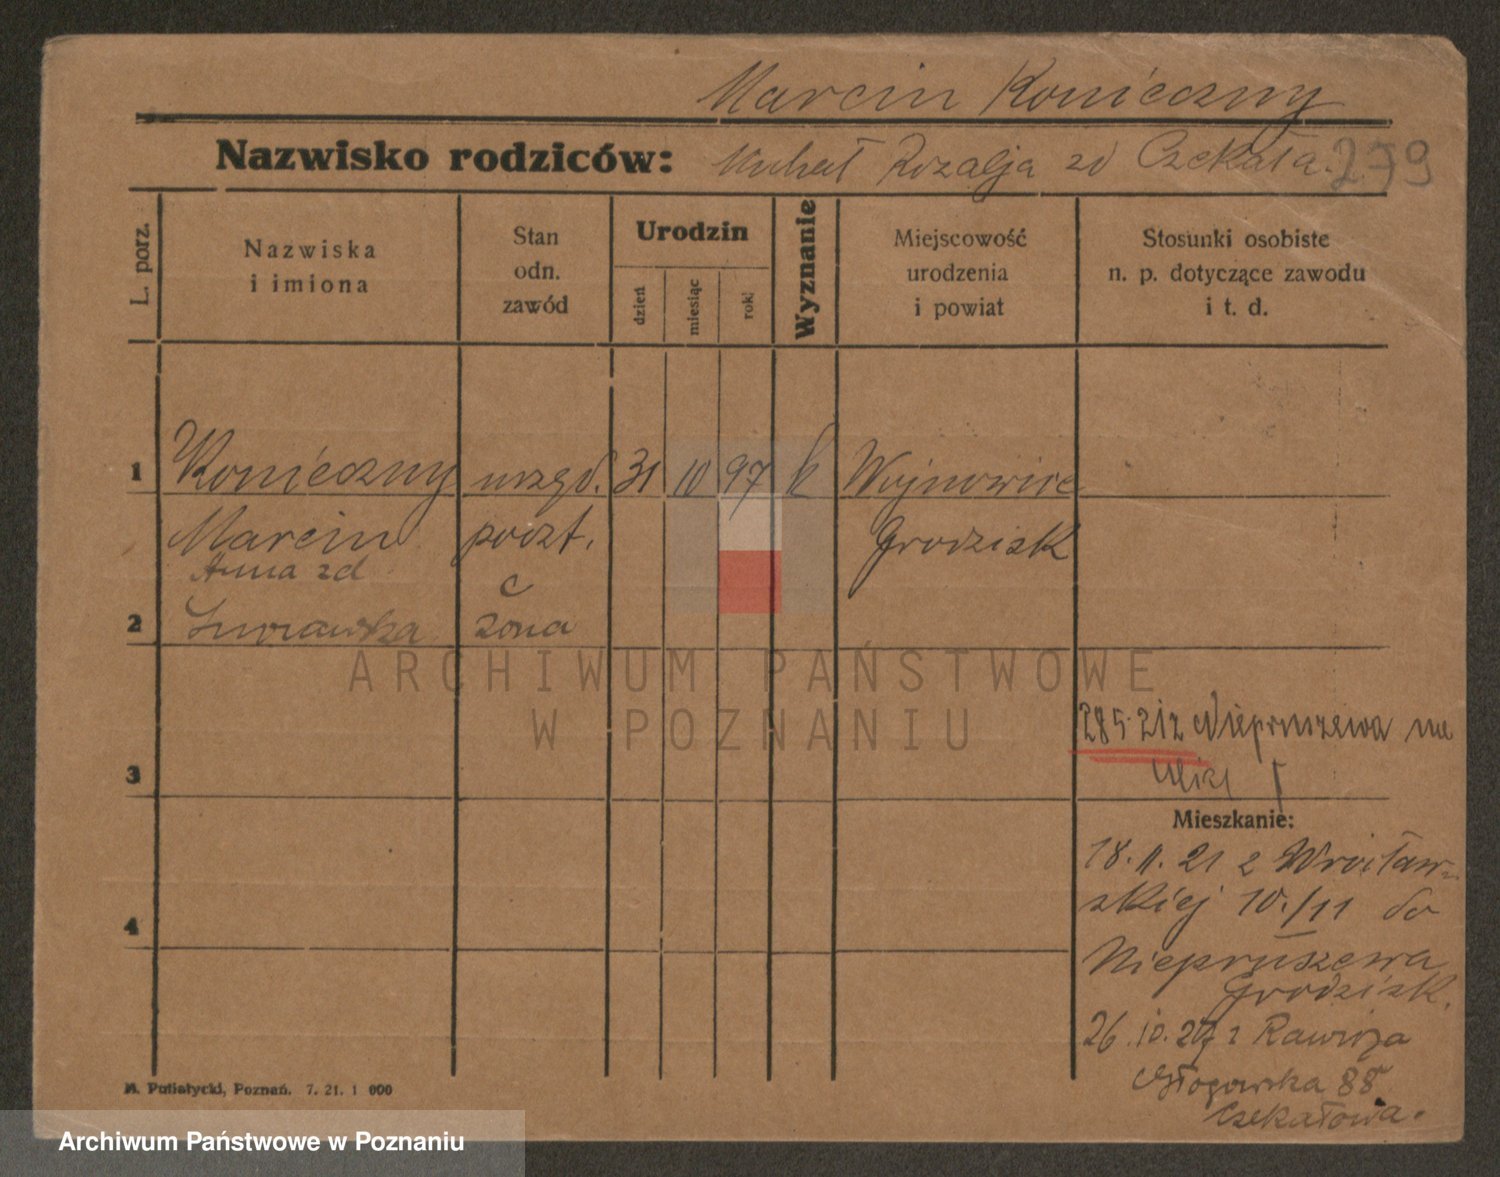 Marcin Konieczny
Nazwisko rodziców: Michał Rozalja zd Czekała. 279
L. porz.
Nazwiska
i imiona
Stan
odn.
zawód
Urodzin
dzień
miesiąc
rok
Wyznanie
Miejscowość
urodzenia
i powiat
Stosunki osobiste
n. p. dotyczące zawodu
i t. d.
1 Konieczny urzęd. 31 10 97 k Wojnowice
Marcin poczt. Grodzisk
Anna zd
2 Żurawska żona
ARCHIWUM PAŃSTWOWE
W POZNANIU
28 5. 21 z Niepruszewa na
3
Mieszkanie:
18. 11. 21 z Wrocław-
skiej 10./11 do
4
Niepruszewa
Grodzisk.
26. 10. 27 z Rawicza
Głogowska 88
Czekałowa.
M. Putiatycki, Poznań. 7. 21. 1 000
Archiwum Państwowe w Poznaniu